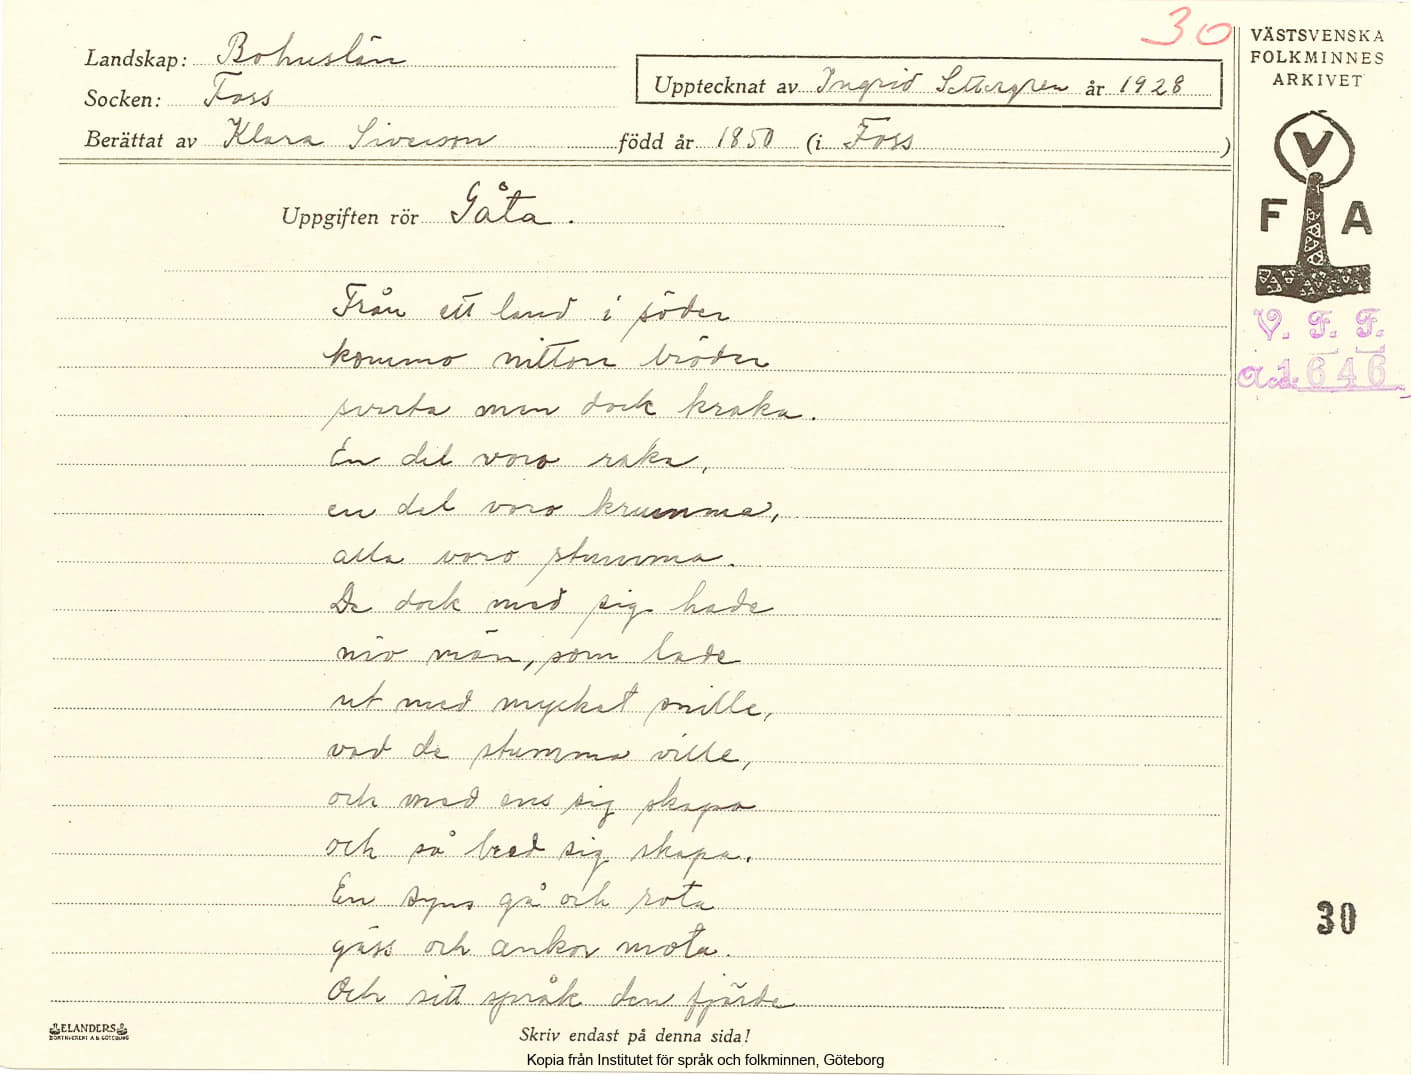 30
Landskap: Bohuslän
Socken: Foss
Upptecknat av Ingrid Settergren år 1928
Berättat av Klara Siverson född år 1850 (i Foss )
Uppgiften rör Gåta.
Från ett land i söder
kommo nitton bröder
svarta men dock kraka.
En del voro raka,
en del voro krumma,
alla voro stumma.
De dock med sig hade
nio män, som lade
ut med mycket snille,
vad de stumma ville,
och med ens sig skapa
och så bred sig skapa.
En syns gå och rota
gäss och ankor mota.
Och sitt språk den fjärde
VÄSTSVENSKA
FOLKMINNES
ARKIVET
V
F A
V. F. F.
Acc. 1646
30
ELANDERS
BOKTRYCKERI A.B. GÖTEBORG
Skriv endast på denna sida!
Kopia från Institutet för språk och folkminnen, Göteborg